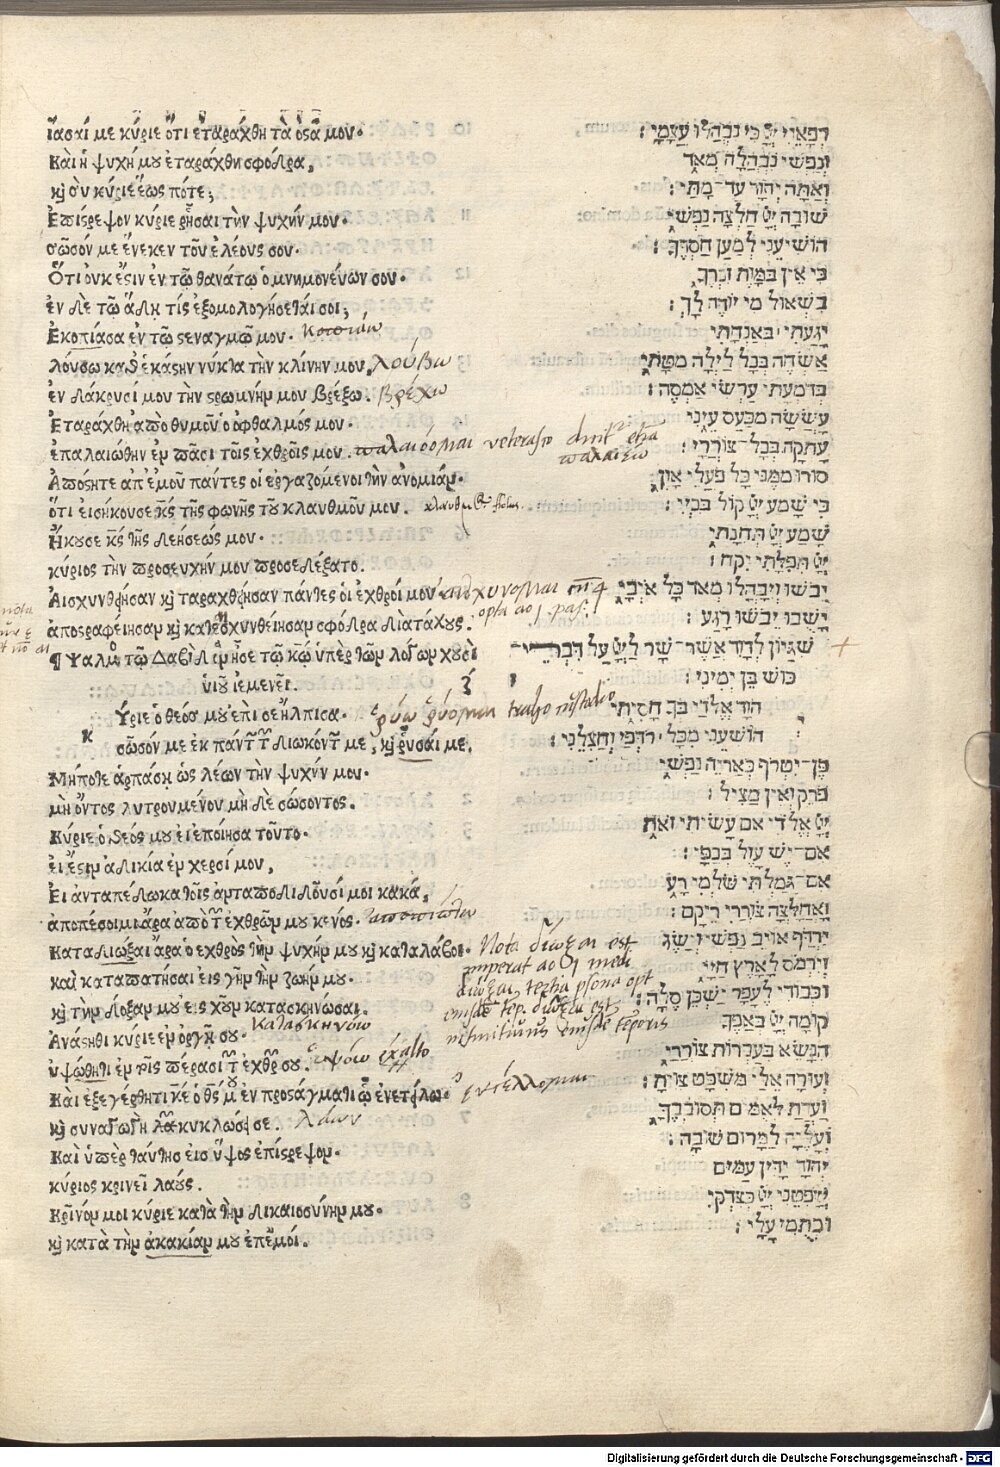 ἴασαί με κύριε ὅτι ἐταράχθη τὰ ὀστᾶ μου.
Καὶ ἡ ψυχή μου ἐταράχθη σφόδρα,
καὶ σὺ κύριε ἕως πότε;
Ἐπίστρεψον κύριε ῥῦσαι τὴν ψυχήν μου.
σῶσόν με ἕνεκεν τοῦ ἐλέους σου.
Ὅτι οὐκ ἔστιν ἐν τῷ θανάτῳ ὁ μνημονεύων σου.
ἐν δὲ τῷ ᾅδῃ τίς ἐξομολογήσεταί σοι;
Ἐκοπίασα ἐν τῷ στεναγμῷ μου. κοπιάω
λούσω καθ' ἑκάστην νύκτα τὴν κλίνην μου, λούω
ἐν δάκρυσί μου τὴν στρωμνήν μου βρέξω. βρέχω
Ἐταράχθη ἀπὸ θυμοῦ ὁ ὀφθαλμός μου.
ἐπαλαιώθην ἐν πᾶσι τοῖς ἐχθροῖς μου. παλαιόομαι veterasco
Ἀπόστητε ἀπ' ἐμοῦ πάντες οἱ ἐργαζόμενοι τὴν ἀνομίαν.
ὅτι εἰσήκουσε κς τῆς φωνῆς τοῦ κλαυθμοῦ μου.
Ἤκουσε κς τῆς δεήσεώς μου.
κύριος τὴν προσευχήν μου προσεδέξατο.
Αἰσχυνθείησαν καὶ ταραχθείησαν πάντες οἱ ἐχθροί μου
ἀποστραφείησαν καὶ καταισχυνθείησαν σφόδρα διατάχους.
¶ Ψαλμὸς τῷ Δαβὶδ ὃν ᾖσε τῷ κῷ ὑπὲρ τῶν λόγων χουσὶ
υἱοῦ ἰεμενεί.
κ ύριε ὁ θεός μου ἐπὶ σεὶ ἤλπισα. ῥύω ῥύομαι
σῶσόν με ἐκ πάντων τῶν διωκόντων με, καὶ ῥῦσαί με.
Μήποτε ἁρπάσῃ ὡς λέων τὴν ψυχήν μου.
μὴ ὄντος λυτρουμένου μὴ δὲ σώσοντος.
Κύριε ὁ θεός μου εἰ ἐποίησα τοῦτο.
εἰ ἔστιν ἀδικία ἐν χερσί μου,
Εἰ ἀνταπέδωκα τοῖς ἀνταποδιδοῦσί μοι κακά,
ἀποπέσοιμι ἄρα ἀπὸ τῶν ἐχθρῶν μου κενός.
Καταδιώξαι ἄρα ὁ ἐχθρὸς τὴν ψυχήν μου καὶ καταλάβοι. Nota διώξαι est
imperat ao 1 medi
καὶ καταπατήσαι εἰς γῆν τὴν ζωήν μου.
διωξαι tertia psona opt
καὶ τὴν δόξαν μου εἰς χοῦν κατασκηνώσαι.
Ἀνάστηθι κύριε ἐν ὀργῇ σου. κατασκηνόω
ὑψώθητι ἐν τοῖς πέρασι τῶν ἐχθρῶν σου. ὑψόω exalto
Καὶ ἐξεγέρθητι κε ὁ θς μου ἐν προστάγματι ᾧ ἐνετείλω. ἐντέλλομαι
καὶ συναγωγὴ λαῶν κυκλώσει σε. λάων
Καὶ ὑπὲρ ταύτης εἰς ὕψος ἐπίστρεψον.
κύριος κρινεῖ λαούς.
Κρῖνόν μοι κύριε κατὰ τὴν δικαιοσύνην μου.
καὶ κατὰ τὴν ἀκακίαν μου ἐπ' ἐμοί.
רפאני יי כי נבהלו עצמי:
ונפשי נבהלה מאד
ואתה יהוה עד־מתי:
שובה יי חלצה נפשי
הושיעני למען חסדך:
כי אין במות זכרך
בשאול מי יודה לך:
יגעתי באנחתי
אשחה בכל לילה מטתי
בדמעתי ערשי אמסה:
עששה מכעס עיני
עתקה בכל־צוררי:
סורו ממני כל פעלי און
כי שמע יי קול בכיי:
שמע יי תחנתי
יי תפלתי יקח:
יבשו ויבהלו מאד כל איבי
ישבו יבשו רגע:
שגיון לדוד אשר־שר ליי על דברי
כוש בן ימיני:
יהוה אלהי בך חסיתי
הושיעני מכל־רדפי והצילני:
פן־יטרף כאריה נפשי
פרק ואין מציל:
יי אלהי אם עשיתי זאת
אם־יש עול בכפי:
אם־גמלתי שלמי רע
ואחלצה צוררי ריקם:
ירדף אויב נפשי וישג
וירמס לארץ חיי
וכבודי לעפר ישכן סלה:
קומה יי באפך
הנשא בעברות צוררי
ועורה אלי משפט צוית:
ועדת לאמים תסובבך
ועליה למרום שובה:
יהוה ידין עמים
שפטני יי כצדקי
וכתמי עלי:
Digitalisierung gefördert durch die Deutsche Forschungsgemeinschaft - DFG